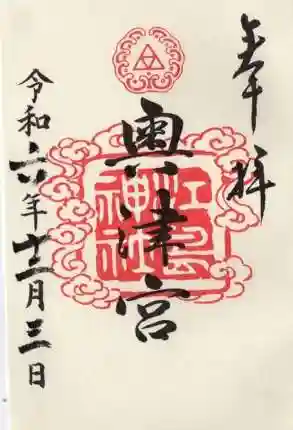 奉拝
奥津宮
江島神社
令和六年十二月三日